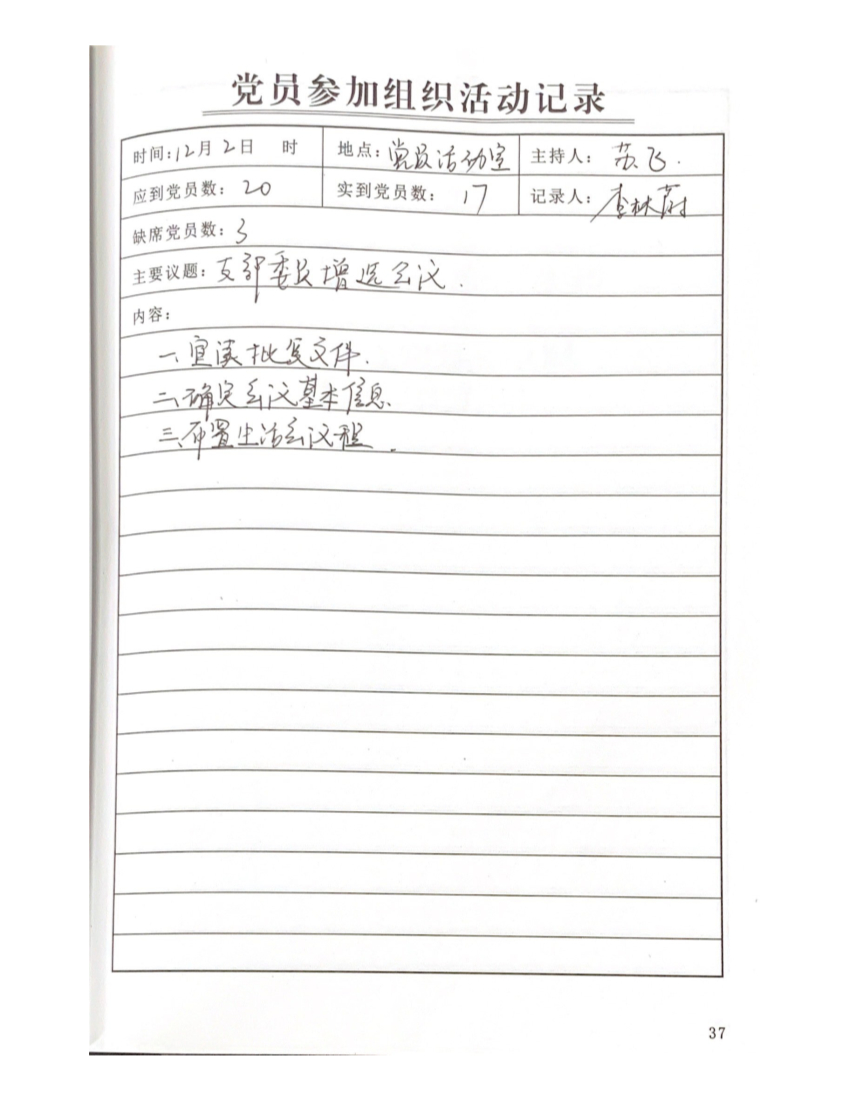 党员参加组织活动记录
时间:12月2日 时 地点:党员活动室 主持人:苏飞.
应到党员数:20 实到党员数:17 记录人:李林蔚
缺席党员数:3
主要议题:支部委员增选会议.
内容:
一、宣读批复文件.
二、确定会议基本信息.
三、布置生活会议程.
37